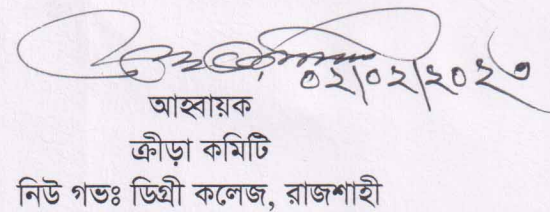 ০২/০২/২০২৩
আহ্বায়ক
ক্রীড়া কমিটি
নিউ গভঃ ডিগ্রী কলেজ, রাজশাহী